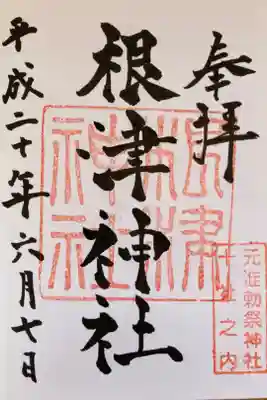 奉拝
根津神社
平成二十年六月七日
根津
神社
元准勅祭神社
十社之内